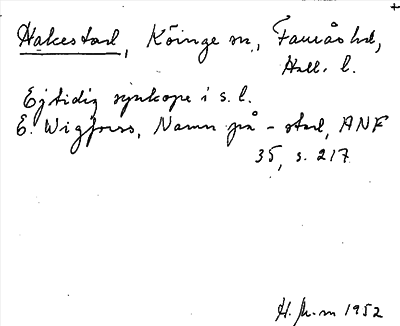 Hakestad, Köinge sn, Faurås hd,
Hall. l.
Ejtidig synkope i s. l.
E. Wigforss, Namn på -stad, ANF
35, s. 217
H. M-m 1952